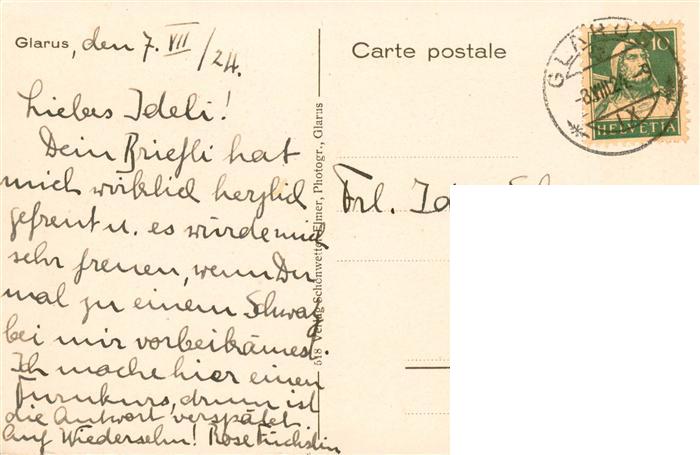 Glarus, den 7. VII / 24.
Carte postale
Liebes Ideli!
Dein Briefli hat
mich wirklich herzlich
gefreut u. es würde mich
sehr freuen, wenn Du
mal zu einem Schwatz
bei mir vorbeikämest.
Ich mache hier einen
Turnkurs, drum ist
die Antwort verspätet.
Auf Wiedersehn! Rose Füchslin
518 Verlag Schönwetter-Elmer, Photogr., Glarus
Frl. Ida
GLARUS
-8.VIII.24
IX
10
HELVETIA